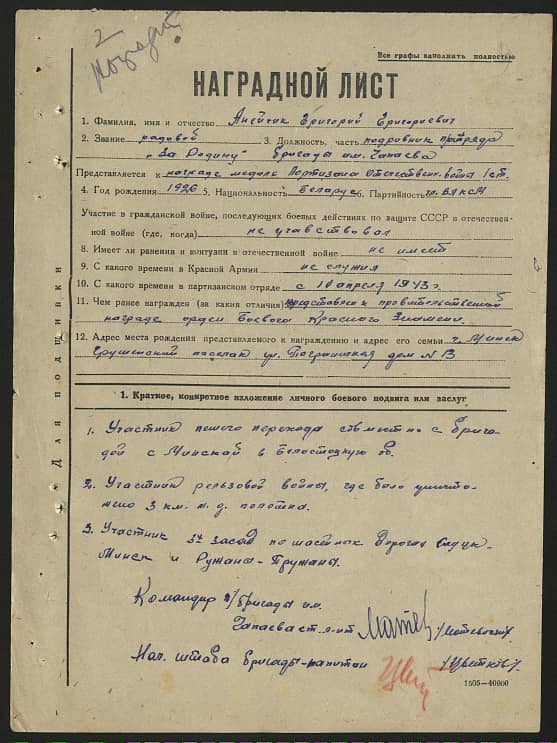 2
Все графы заполнить полностью
НАГРАДНОЙ ЛИСТ
1. Фамилия, имя и отчество Анейчик Григорий Григориевич
2. Звание рядовой 3. Должность, часть подрывник п/отряда
"За Родину" бригады им. Чапаева
Представляется к награде медаль Партизана Отечествен. война 1 ст.
4. Год рождения 1926 5. Национальность Беларус 6. Партийность чл. ВЛКСМ
Участие в гражданской войне, последующих боевых действиях по защите СССР в отечествен-
ной войне (где, когда) не учавствовал
8. Имеет ли ранения и контузии в отечественной войне не имеет
9. С какого времени в Красной Армии не служил
10. С какого времени в партизанском отряде с 10 апреля 1943 г.
11. Чем ранее награжден (за какия отличия) представлен к правительственной
награде орден Боевого Красного Знамени.
12. Адрес места рождения представляемого к награждению и адрес его семьи г. Минск
Грушевский поселак ул. дом N 13
Для подшивки
1. Краткое, конкретное изложение личного боевого подвига или заслуг
1. Участник пешого перехода совместно с брига-
дой с Минской в Белостоцкую об.
2. Участник рельзовой войны, где было уничто-
жено 3 км. ж.д. полотна.
3. Участник засад по шастейнах дорогах Слуцк-
Минск и Ружана-Пружаны.
Командир п/бригады им.
Чапаева ст. л-нт
Нач. штаба бригады-капитан /Цветков/
1505—40000